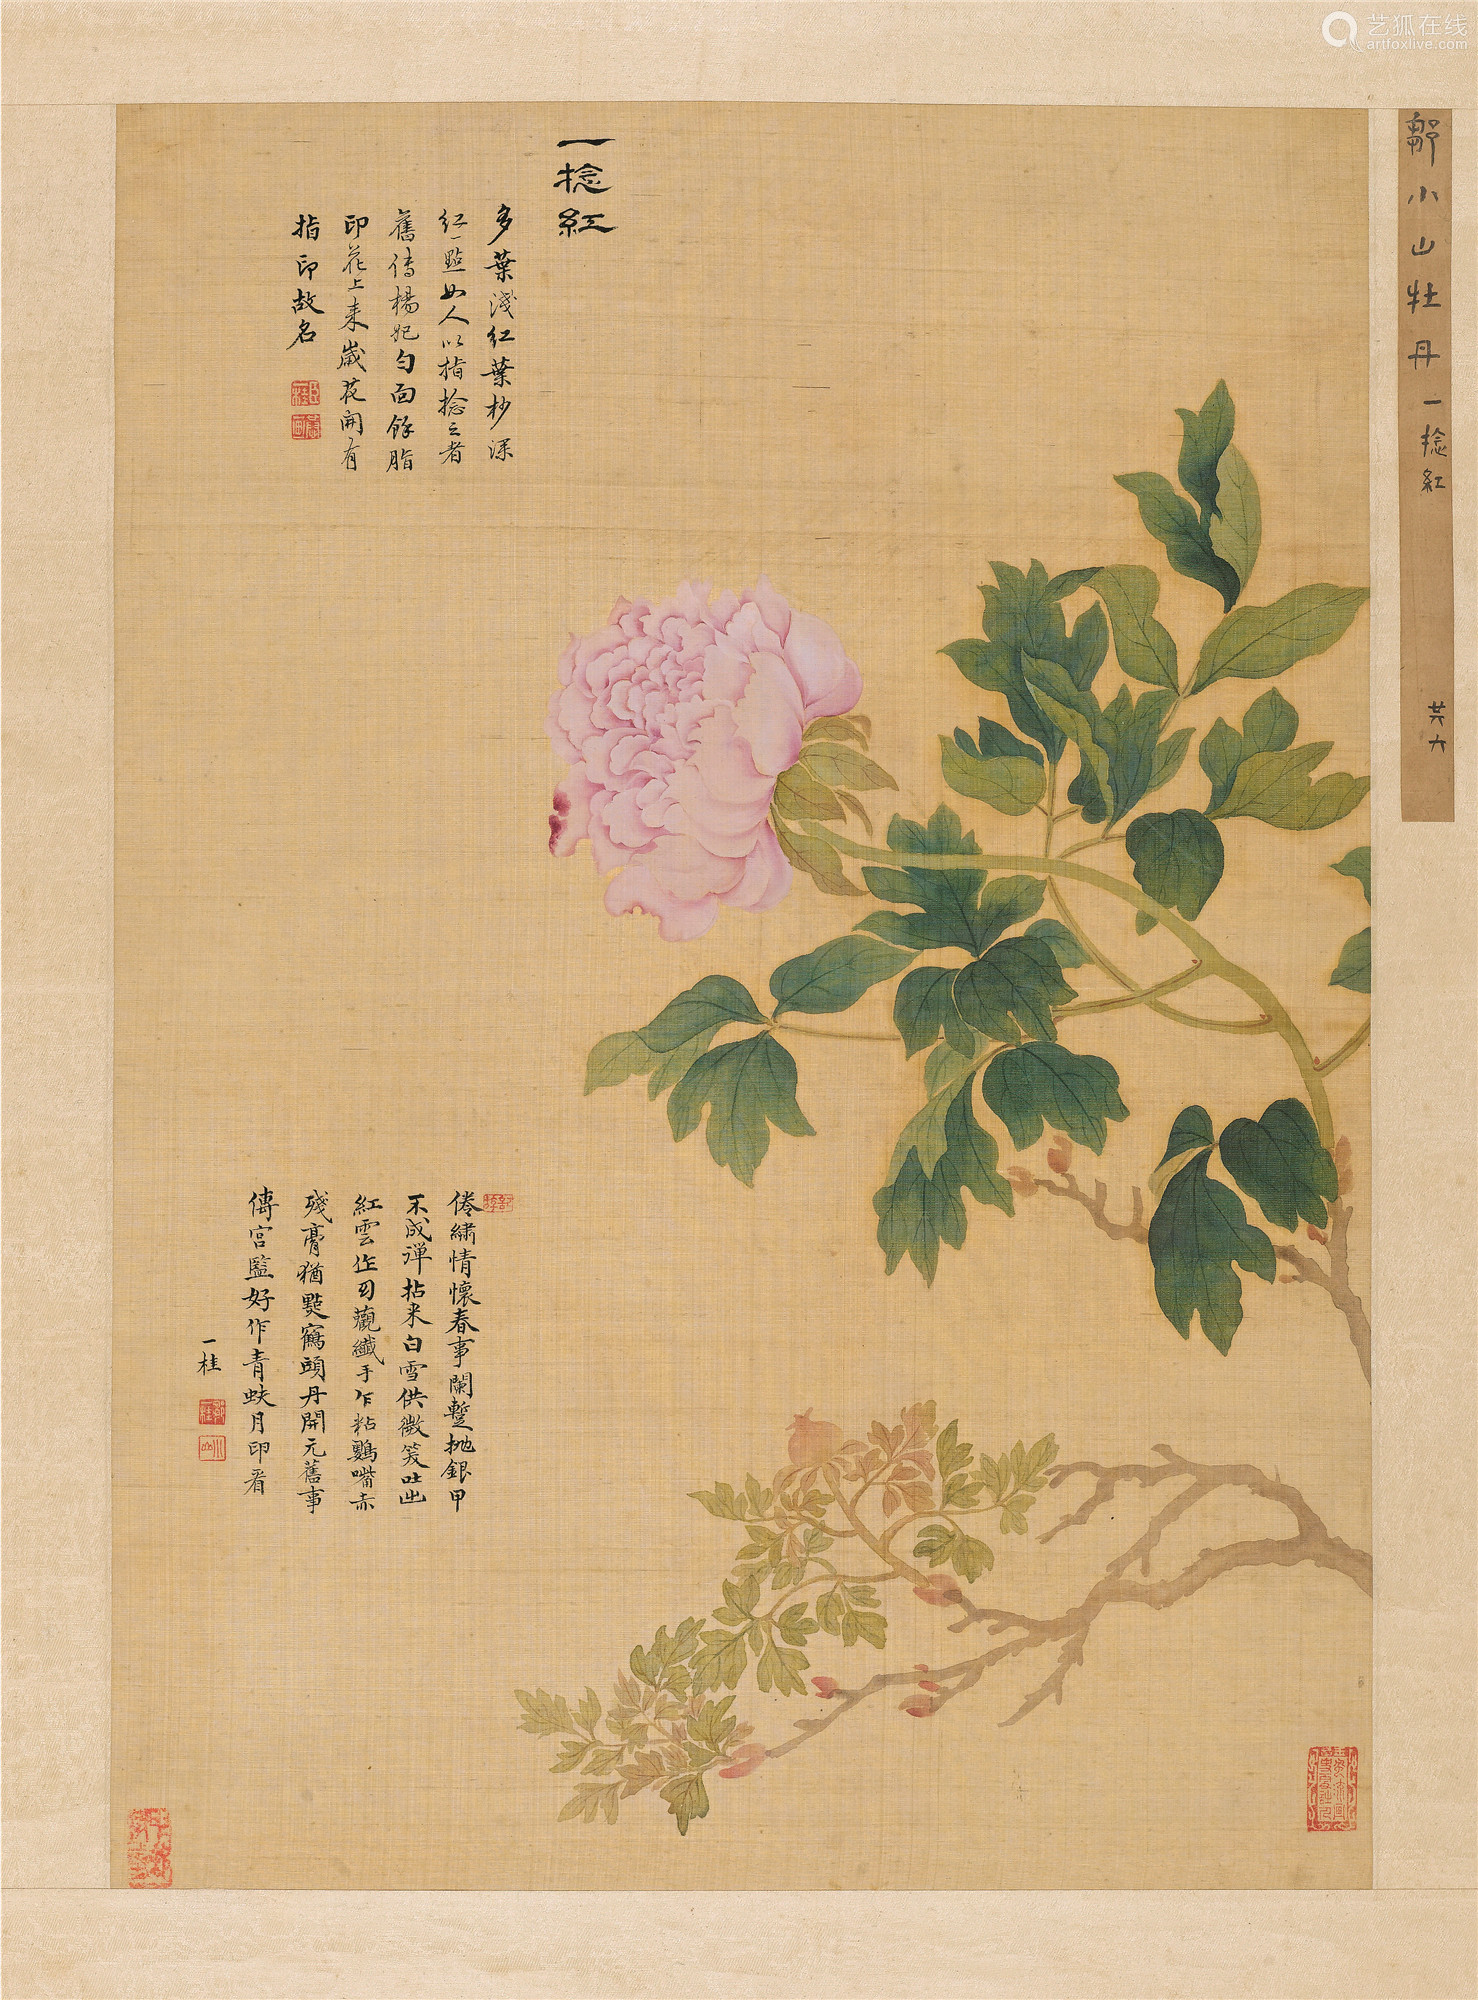 艺狐在线
artfoxlive.com
鄒小山牡丹一捻紅
共六
一捻紅
多葉淺红葉杪深
红一點如人以指捻之者
舊傳楊妃勻面餘脂
印花上来歲花開有
指印故名
倦繡情懷春事闌蹔抛銀甲
不成彈拈来白雪供微笑吐出
紅雲作 觀纖手乍粘鸚嘴赤
殘膏猶㸃鶴頭丹開元舊事
傳宮監好作青蚨月印看
一桂